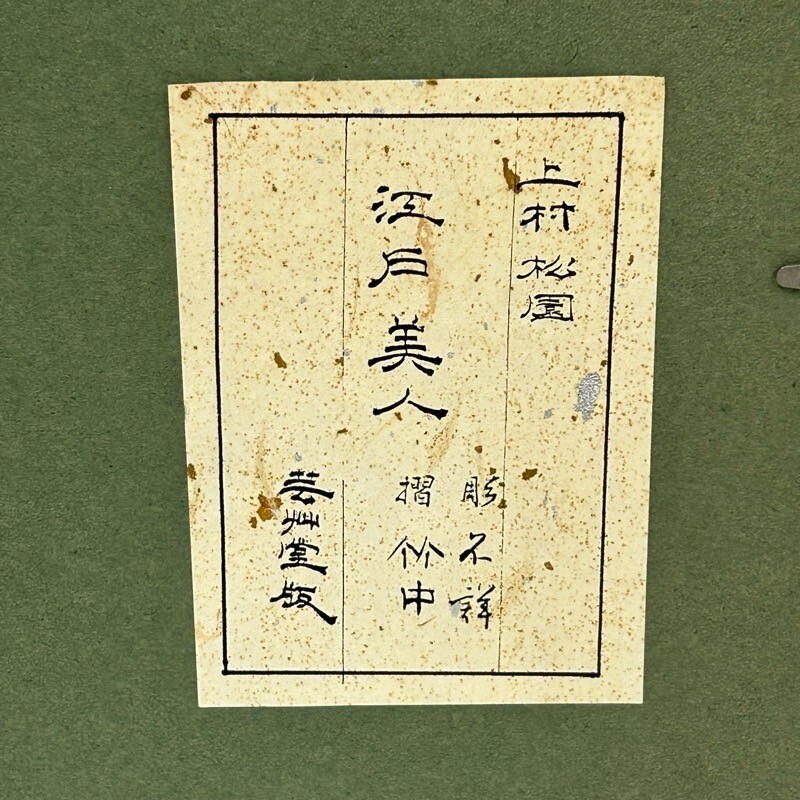 上村松園
江戸美人
彫不詳
摺竹中
芸艸堂版